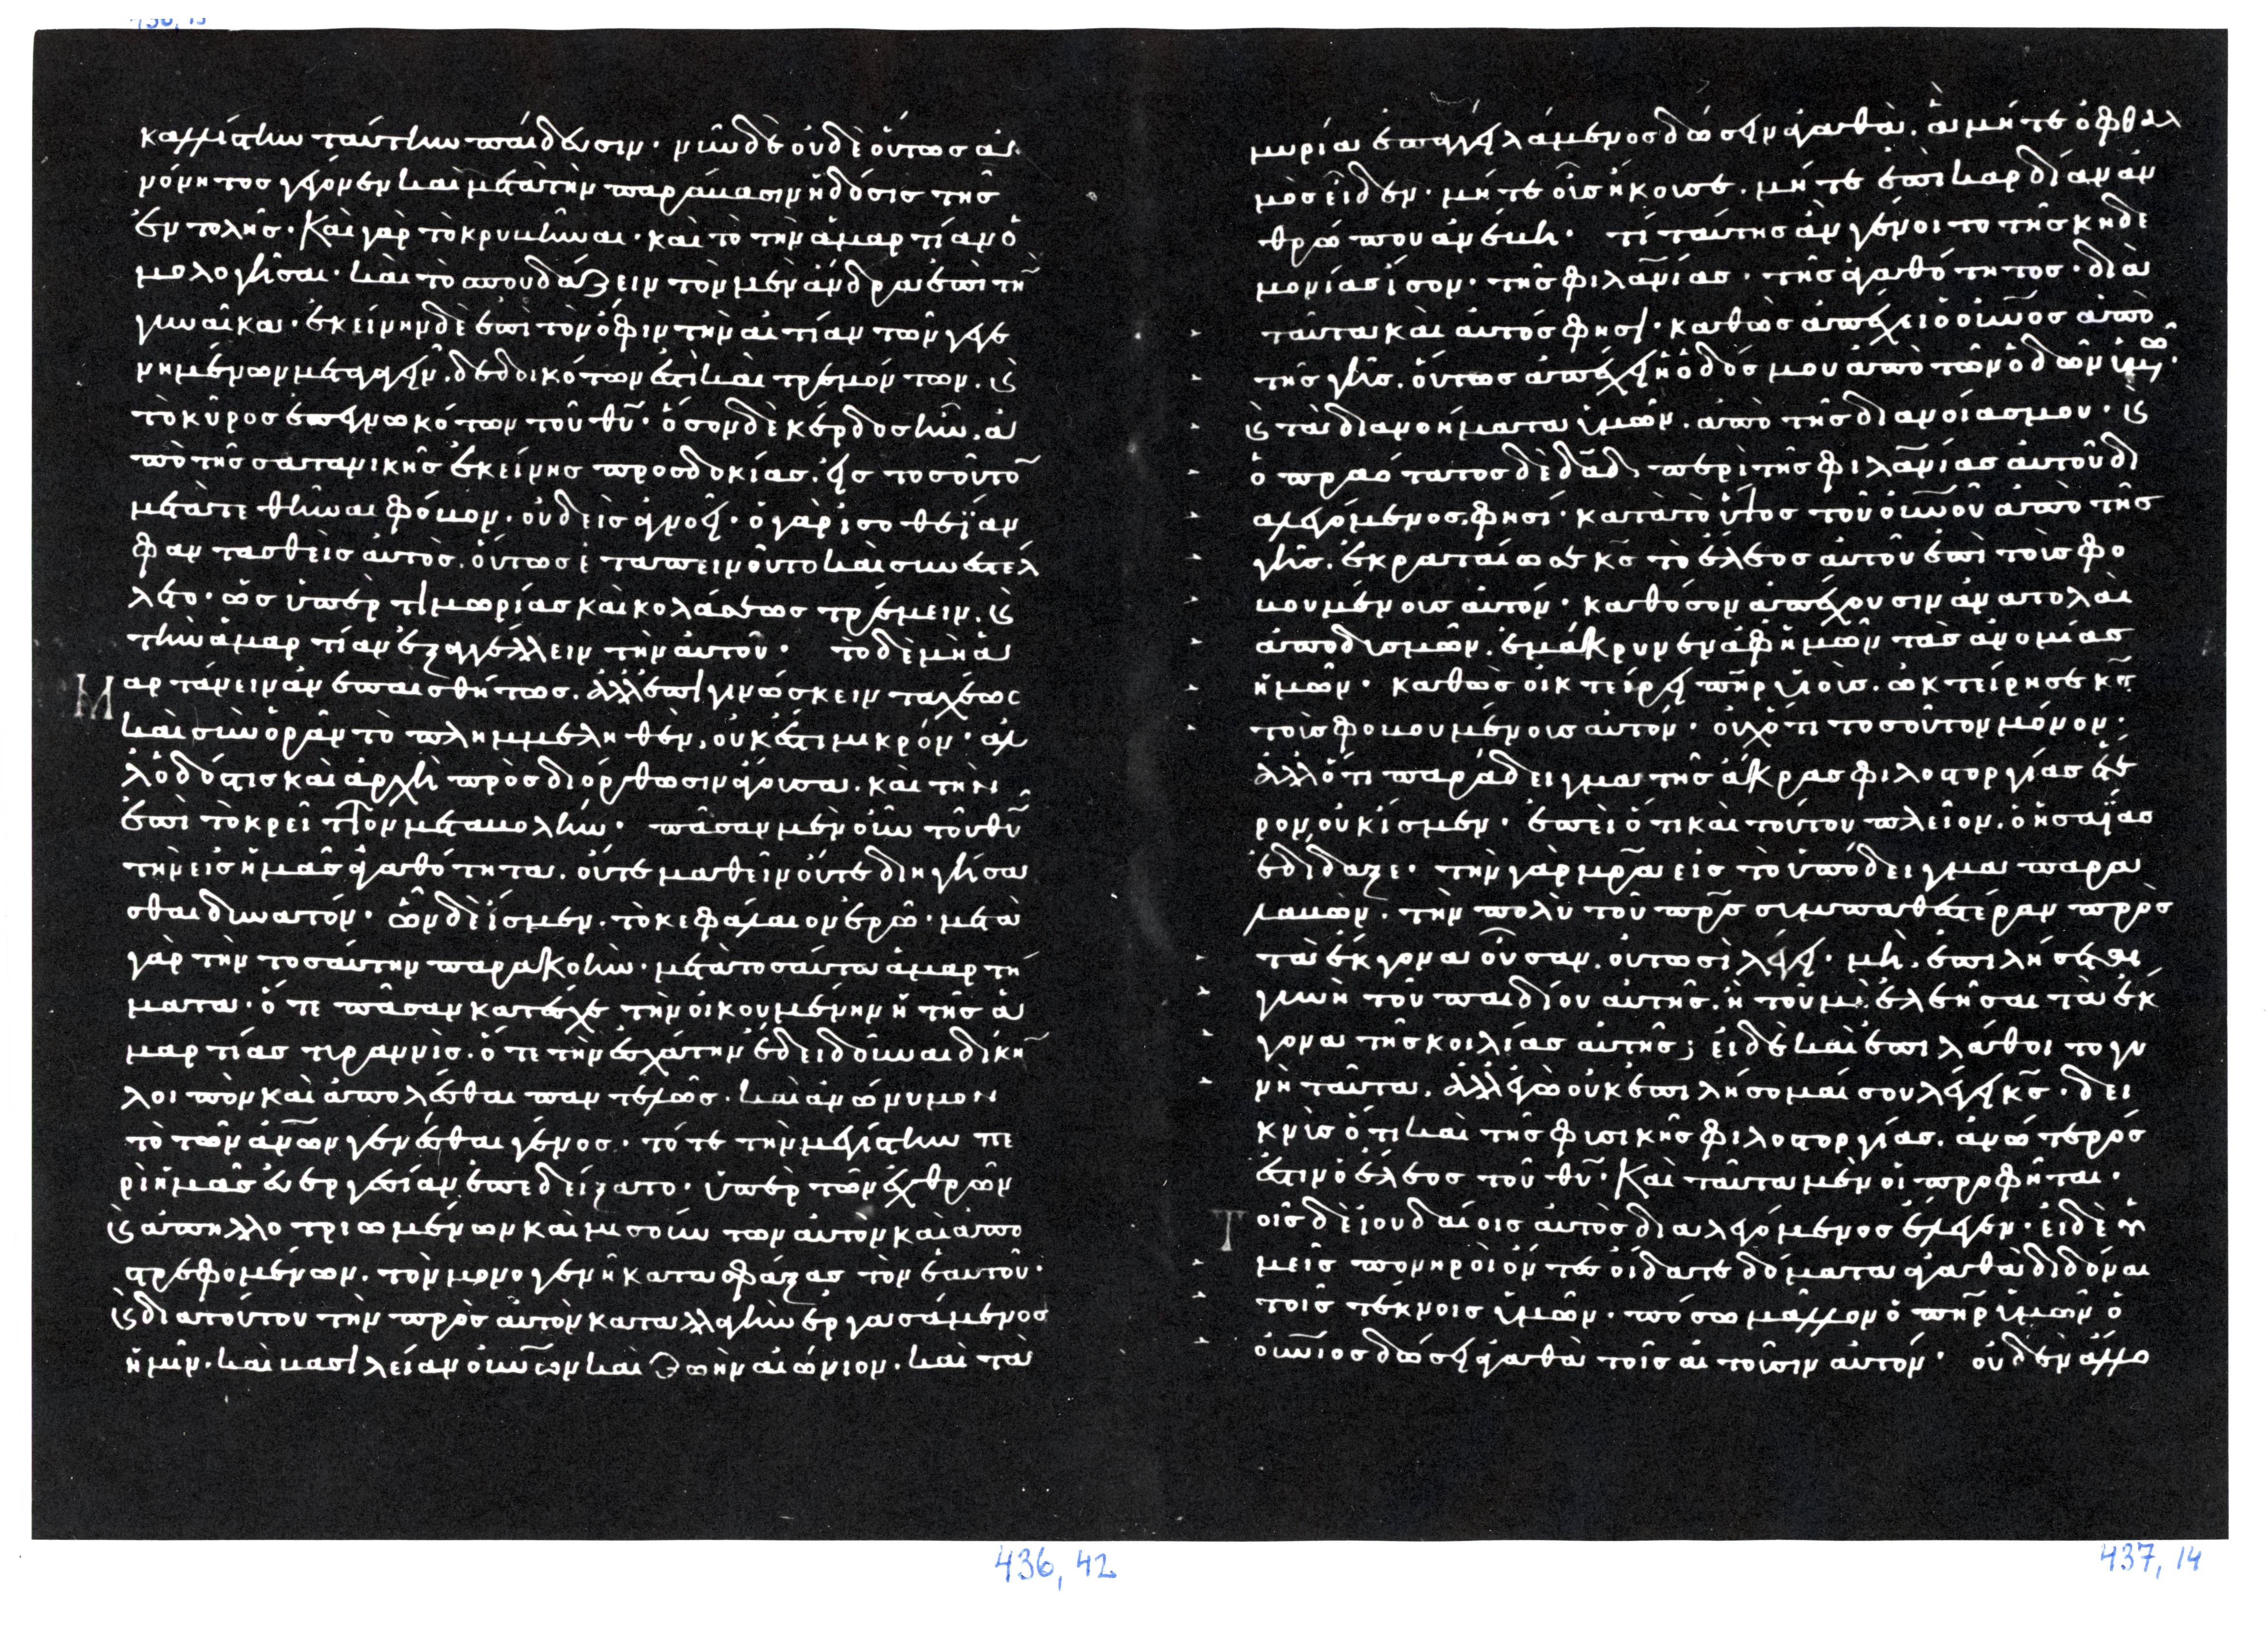 καλλίστην ταύτην παίδευσιν. μᾶλλον δὲ οὐδὲ οὕτως ἀ
νόνητος γέγονεν καὶ μετὰ τὴν παράβασιν ἡ δόσις τῆς
ἐντολῆς. Καὶ γὰρ τὸ κρυβῆναι. καὶ τὸ τὴν ἁμαρτίαν ὁ
μολογῆσαι. καὶ τὸ σπουδάζειν τὸν μὲν ἄνδρα ἐπὶ τὴν
γυναῖκα. ἐκείνην δὲ ἐπὶ τὸν ὄφιν τὴν αἰτίαν τῶν γεγε
νημένων μετάγειν. δεδοικότων ἐστὶ καὶ τρεμόντων. κ(αὶ)
τὸ κῦρος ἐπεγνωκότων τοῦ θυ. ὅσον δὲ κέρδος ἦν. ἀ
πὸ τῆς σατανικῆς ἐκείνης προσδοκίας. εἰς τοσοῦτον
μετατεθῆναι φόβον. οὐδεὶς ἀγνοεῖ. ὁ γὰρ ἰσοθεΐαν
φαντασθεὶς αὐτὸς. οὕτως ἐταπεινοῦτο καὶ συνεστέλ
λετο. ὡς ὑπὲρ τιμωρίας καὶ κολάσεως τρέμειν. κ(αὶ)
τὴν ἁμαρτίαν ἐξαγγέλλειν τὴν αὐτοῦ. τὸ δὲ μὴ ἁ
μαρτάνειν ἀνεπαισθήτως. ἀλλ' ἐπιγινώσκειν ταχέως
καὶ συνορᾶν τὸ πλημμεληθὲν, οὐκ ἔστι μικρόν. ἀλ
λ' ὁδός τις καὶ ἀρχὴ πρὸς διόρθωσιν ἄγουσα. καὶ τὴν
ἐπὶ τὸ κρεῖττον μεταβολήν. πᾶσαν μὲν οὖν τοῦ θυ
τὴν εἰς ἡμᾶς ἀγαθότητα. οὔτε μαθεῖν οὔτε διηγήσα
σθαι δυνατόν. ὧν δὲ ἴσμεν. τὸ κεφάλαιον ἐρῶ. μετὰ
γὰρ τὴν τοσαύτην παρακοὴν. μετὰ τοσαῦτα ἁμαρτή
ματα. ὅτε πᾶσαν κατέσχε τὴν οἰκουμένην ἡ τῆς ἁ
μαρτίας τυραννὶς. ὅτε τὴν ἐσχάτην ἔδει δοῦναι δίκην
λοιπὸν καὶ ἀπολέσθαι παντελῶς. καὶ ἀνώνυμον
τὸ τῶν ἀνων γενέσθαι γένος. τότε τὴν μεγίστην πε
ρὶ ἡμᾶς εὐεργεσίαν ἐπεδείξατο. ὑπὲρ τῶν ἐχθρῶν
κ(αὶ) ἀπηλλοτριωμένων καὶ μισούντων αὐτὸν καὶ ἀπο
στρεφομένων. τὸν μονογενῆ κατασφάξας τὸν ἑαυτοῦ.
κ(αὶ) διὰ τούτου τὴν πρὸς αὐτὸν καταλλαγὴν ἐργασάμενος
ἡμῖν. καὶ βασιλείαν οὐνῶν καὶ ζωὴν αἰώνιον. καὶ τὰ
μυρία ἐπαγγειλάμενος δώσειν ἀγαθὰ. ἃ μήτε ὀφθαλ
μὸς εἶδεν. μήτε οὖς ἤκουσε. μήτε ἐπὶ καρδίαν ἀν
θρώπου ἀνέβη. τί ταύτης ἂν γένοιτο τῆς κηδε
μονίας ἴσον. τῆς φιλανίας. τῆς ἀγαθότητος. διὰ
ταῦτα καὶ αὐτός φησι. καθὼς ἀπέχει ὁ οὐνος ἀπὸ
τῆς γῆς. οὕτως ἀπέχει ἡ ὁδός μου ἀπὸ τῶν ὁδῶν ὑμῶν.
κ(αὶ) τὰ διανοήματα ὑμῶν. ἀπὸ τῆς διανοίας μου. κ(αὶ)
ὁ πραότατος δὲ δαδ, περὶ τῆς φιλανίας αὐτοῦ δι
αλεγόμενος. φησί. κατὰ τὸ ὕψος τοῦ οὐνοῦ ἀπὸ τῆς
γῆς. ἐκραταίωσε κς τὸ ἔλεος αὐτοῦ ἐπὶ τοὺς φο
βουμένους αὐτόν. καθόσον ἀπέχουσιν ἀνατολαὶ
ἀπὸ δυσμῶν. ἐμάκρυνεν ἀφ' ἡμῶν τὰς ἀνομίας
ἡμῶν. καθὼς οἰκτείρει πὴρ υἱοὺς. ὠκτείρησε κς
τοὺς φοβουμένους αὐτόν. οὐχ ὅτι τοσοῦτον μόνον.
ἀλλ' ὅτι παράδειγμα τῆς ἄκρας φιλοστοργίας ἕτε
ρον οὐκ ἴσμεν. ἐπεὶ ὅτι καὶ τούτου πλεῖον. ὁ ἡσαΐας
ἐδίδαξε. τὴν γὰρ μρα εἰς τὸ ὑπόδειγμα παρα
λαβὼν. τὴν πολὺ τοῦ πρς συμπαθεστέραν πρὸς
τὰ ἔκγονα οὖσαν. οὑτωσὶ λέγει. μὴ ἐπιλήσεται
γυνὴ τοῦ παιδίου αὐτῆς. ἢ τοῦ μὴ ἐλεῆσαι τὰ ἔκ
γονα τῆς κοιλίας αὐτῆς; εἰ δὲ καὶ ἐπιλάθοιτο γυ
νὴ ταῦτα. ἀλλ' ἐγὼ οὐκ ἐπιλήσομαί σου λέγει κς. δει
κνὺς ὅτι καὶ τῆς φυσικῆς φιλοστοργίας. ἀνώτερός
ἐστιν ὁ ἔλεος τοῦ θυ. Καὶ ταῦτα μὲν οἱ προφῆται.
Τοῖς δὲ ἰουδαίοις αὐτὸς διαλεγόμενος ἔλεγεν. εἰ δὲ ὑ
μεῖς πονηροὶ ὄντες οἴδατε δόματα ἀγαθὰ διδόναι
τοῖς τέκνοις ὑμῶν. πόσω μᾶλλον ὁ πὴρ ὑμῶν ὁ
οὐνιος δώσει ἀγαθὰ τοῖς αἰτοῦσιν αὐτόν. οὐδὲν ἄλλο
436, 42
437, 14